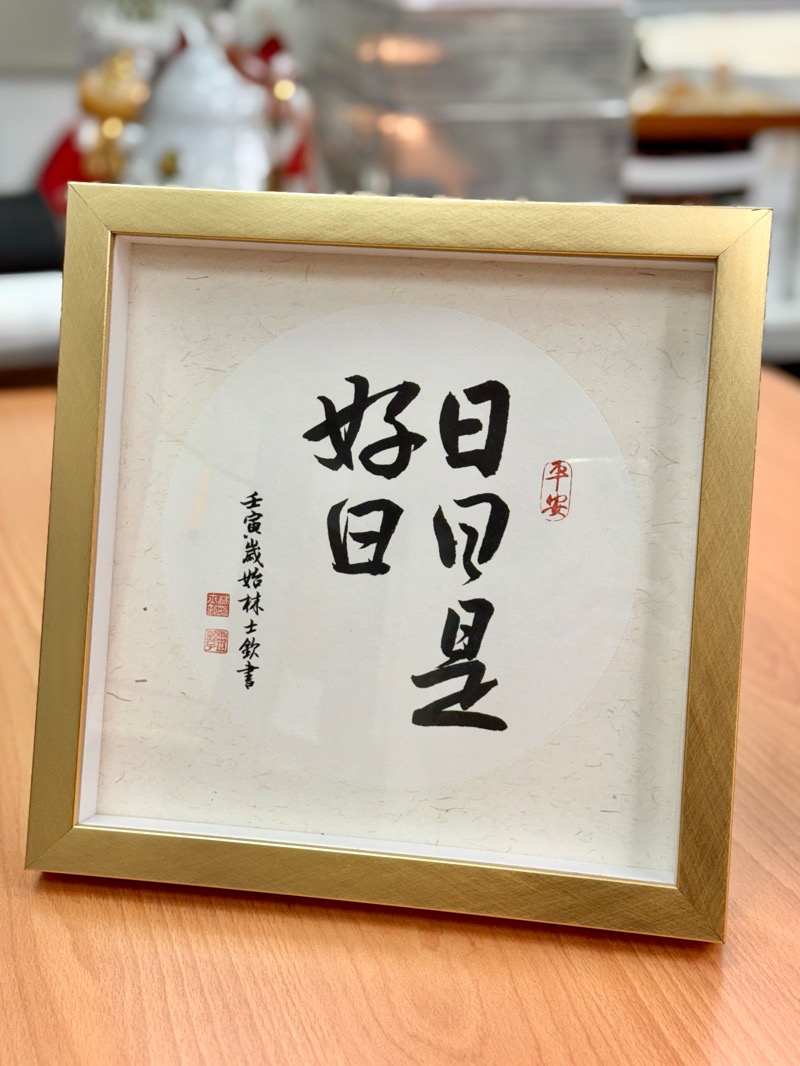 平安
日日是
好日
壬寅歲始林士欽書